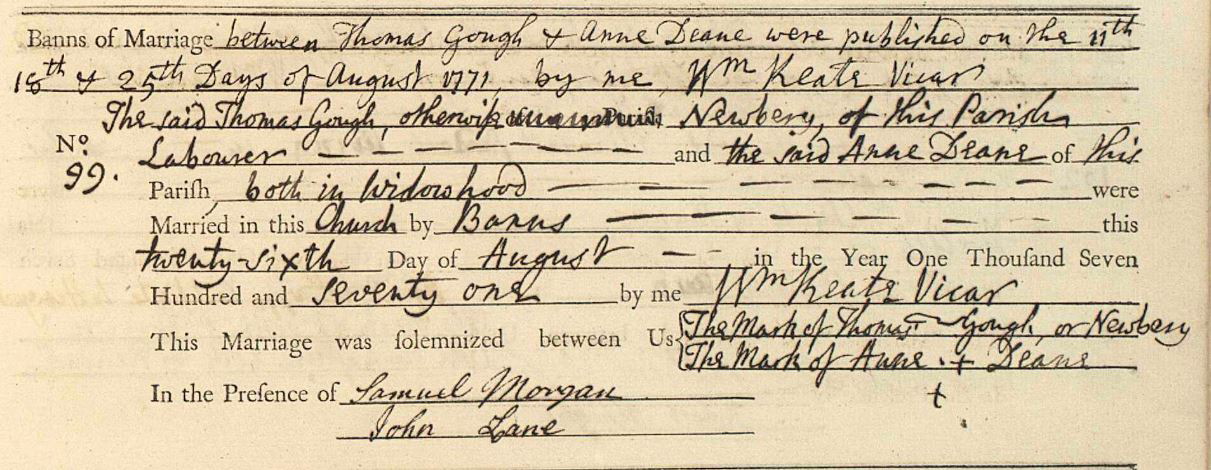 Banns of Marriage between Thomas Gough & Anne Deane were published on the 11th
18th & 25th Days of August 1771, by me, Wm Keate Vicar
The said Thomas Gough, otherwise Newbery, of this Parish
No. 99. Labourer — — — — — — and the said Anne Deane of this
Pariſh, both in Widowhood — — — — — — — — were
Married in this Church by Banns — — — — — — this
twenty-sixth Day of August — — in the Year One Thouſand Seven
Hundred and seventy one by me Wm Keate Vicar
This Marriage was ſolemnized between Us { The Mark of Thomas ~ Gough, or Newbery
The Mark of Anne + Deane
+
In the Preſence of Samuel Morgan
John Lane